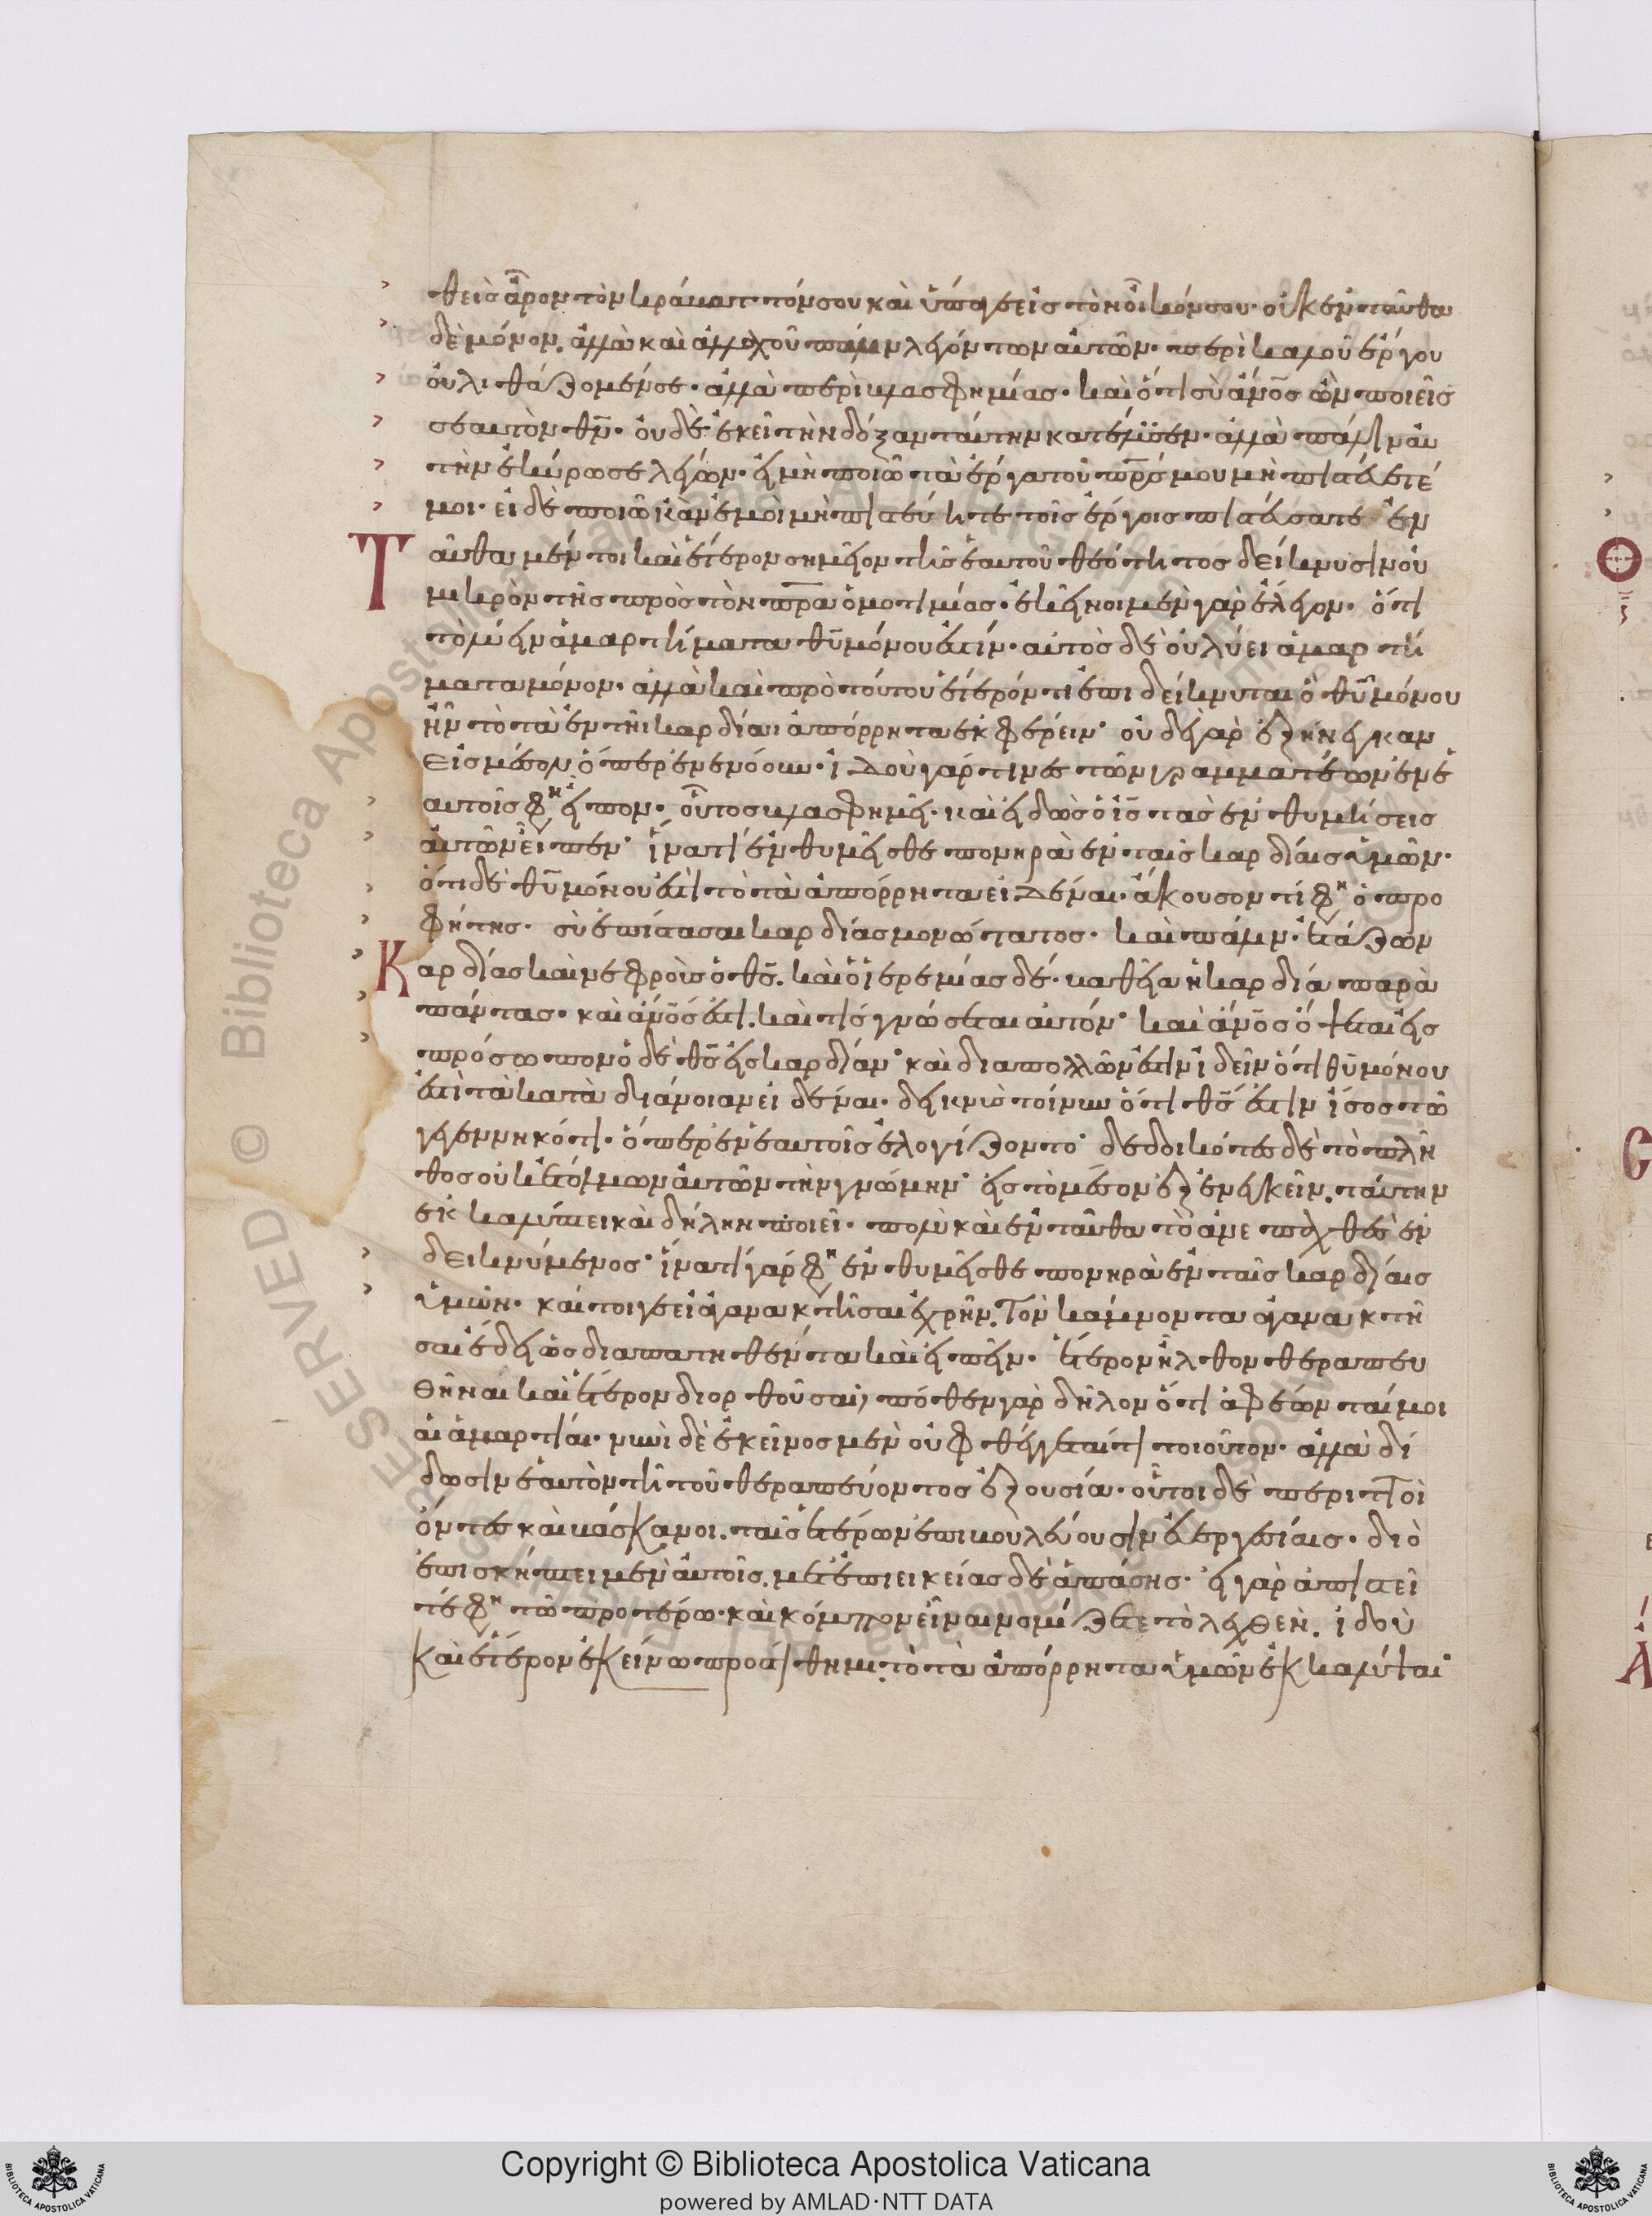 θεὶς ἆρον τὸν κράββατόν σου καὶ ὕπαγε εἰς τὸν οἶκόν σου· οὐκ ἐνταῦθα
δὲ μόνον, ἀλλὰ καὶ ἀλλαχοῦ πάλιν λεγόντων αὐτῶν· περὶ καλοῦ ἔργου
οὐ λιθάζομέν σε· ἀλλὰ περὶ βλασφημίας· καὶ ὅτι σὺ ἄνος ὢν ποιεῖς
σεαυτὸν θν· οὐδὲ ἐκεῖ τὴν δόξαν ταύτην κατέλυσεν· ἀλλὰ πάλιν αὐ
τὴν ἐκύρωσε λέγων· εἰ μὴ ποιῶ τὰ ἔργα τοῦ πρς μου μὴ πιστεύετέ
μοι· εἰ δὲ ποιῶ κἂν ἐμοὶ μὴ πιστεύητε τοῖς ἔργοις πιστεύσατε· ἐν
Ταῦθα μέν τοι καὶ ἕτερον σημεῖον τῆς ἑαυτοῦ θεότητος δείκνυσιν οὐ
μικρὸν τῆς πρὸς τὸν πρα ὁμοτιμίας· ἐκεῖνοι μὲν γὰρ ἔλεγον· ὅτι
τὸ λύειν ἁμαρτήματα θυ μόνου ἐστίν· αὐτὸς δὲ οὐ λύει ἁμαρτή
ματα μόνον· ἀλλὰ καὶ πρὸ τούτου ἕτερόν τι ἐπιδείκνυται ὃ θυ μόνου
ἦν τὸ τὰ ἐν τῆι καρδίαι ἀπόρρητα ἐκφέρειν· οὐδὲ γὰρ ἐξήνεγκαν
εἰς μέσον ὅπερ ἐνενόουν· ἰδοὺ γάρ τινες τῶν γραμματέων ἐν ἑ
αυτοῖς φη εἶπον· οὗτος βλασφημεῖ· καὶ εἰδὼς ὁ ις τὰς ἐνθυμήσεις
αὐτῶν εἶπεν· ἵνα τί ἐνθυμεῖσθε πονηρὰ ἐν ταῖς καρδίαις ὑμῶν·
ὅτι δὲ θυ μόνου ἐστὶ τὸ τὰ ἀπόρρητα εἰδέναι· ἄκουσον τί φη ὁ προ
φήτης· σὺ ἐπίστασαι καρδίας μονώτατος· καὶ πάλιν· ἐτάζων
Καρδίας καὶ νεφροὺς ὁ θς. καὶ ὁ ἱερεμίας δέ· βαθεῖα ἡ καρδία παρὰ
πάντας· καὶ ἄνος ἐστι. καὶ τίς γνώσεται αὐτόν· καὶ ἄνος ὄψεται εἰς
πρόσωπον ὁ δὲ θς εἰς καρδίαν· καὶ διὰ πολλῶν ἐστιν ἰδεῖν ὅτι θυ μόνου
ἐστὶ τὰ κατὰ διάνοιαν εἰδέναι· δεικνὺς τοίνυν ὅτι θς ἐστιν ἴσος τῶ
γεγεννηκότι· ὅπερ ἐν ἑαυτοῖς ἐλογίζοντο· δεδοικότες δὲ τὸ πλῆ
θος οὐκ ἐτόλμων αὐτῶν τὴν γνώμην· εἰς τὸ μέσον ἐξενεγκεῖν, ταύτην
ἐκκαλύπτει καὶ δήλην ποιεῖ· πολὺ καὶ ἐνταῦθα τὸ ἀνεπαχθὲς ἐν
δεικνύμενος· ἵνα τί γάρ φη ἐνθυμεῖσθε πονηρὰ ἐν ταῖς καρδίαις
ὑμῶν· καί τοι γε εἰ ἀγανακτῆσαι ἐχρῆν, τὸν κάμνοντα ἀγανακτῆ
σαι ἔδει ὡς διαπατηθέντα καὶ εἰπεῖν· ἕτερον ἦλθον θεραπευ
θῆναι καὶ ἕτερον διορθοῦσαι, πόθεν γὰρ δῆλον ὅτι ἀφέωνταί μοι
αἱ ἁμαρτίαι· νυνὶ δὲ ἐκεῖνος μὲν οὐ φθέγγεταί τι τοιοῦτον· ἀλλὰ δί
δωσιν ἑαυτὸν τῆ τοῦ θεραπεύοντος ἐξουσία· οὗτοι δὲ περιττοὶ
ὄντες καὶ βάσκανοι. ταῖς ἑτέρων ἐπιβουλεύουσιν εὐεργεσίαις· διὸ
ἐπισκήπτει μὲν αὐτοῖς, μετ' ἐπιεικείας δὲ ἁπάσης· εἰ γὰρ ἀπιστεῖ
τέ φη τῶ προτέρω· καὶ κόμπον εἶναι νομίζετε τὸ λεχθέν. ἰδοὺ
καὶ ἕτερον ἐκείνω προστίθημι, τὸ τὰ ἀπόρρητα ὑμῶν ἐκκαλύψαι·
Copyright © Biblioteca Apostolica Vaticana
powered by AMLAD·NTT DATA